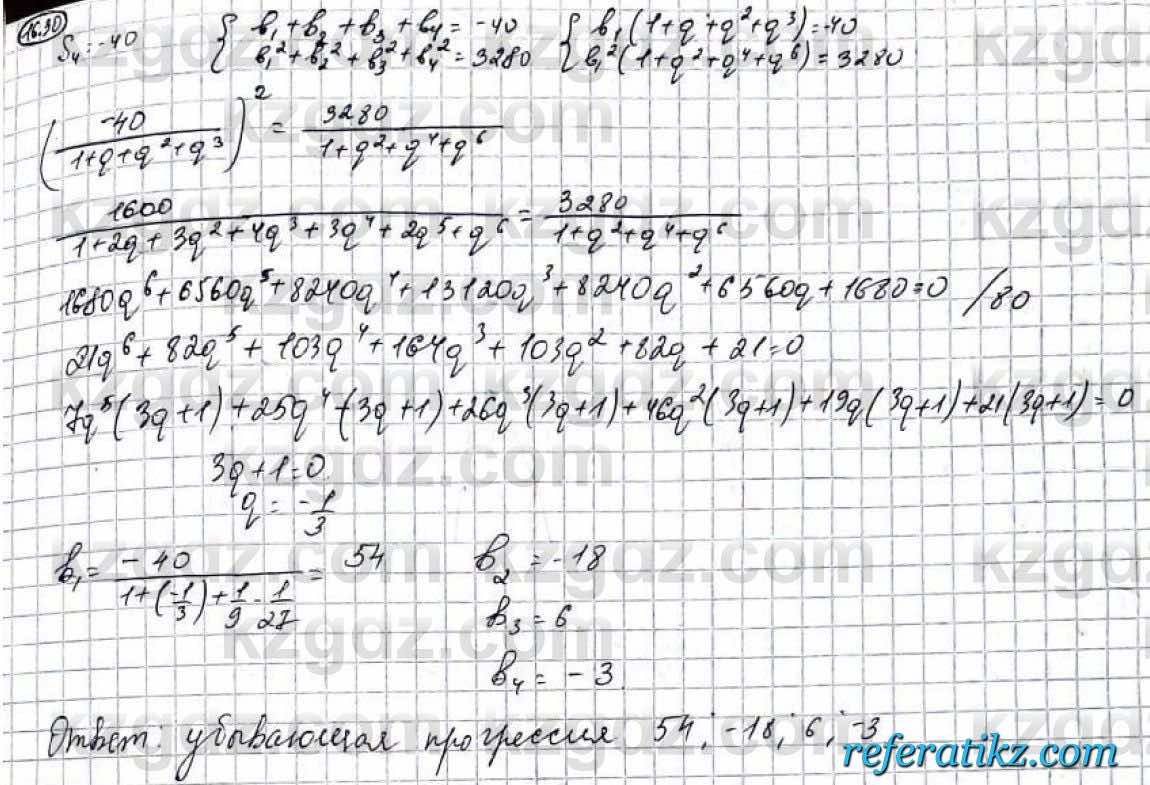 16.30
S₄ = -40 { b₁ + b₂ + b₃ + b₄ = -40 { b₁(1+q+q²+q³) = -40
b₁² + b₂² + b₃² + b₄² = 3280 b₁²(1+q²+q⁴+q⁶) = 3280
(-40 / (1+q+q²+q³))² = 3280 / (1+q²+q⁴+q⁶)
1600 / (1+2q+3q²+4q³+3q⁴+2q⁵+q⁶) = 3280 / (1+q²+q⁴+q⁶)
1680q⁶+6560q⁵+8240q⁴+13120q³+8240q²+6560q+1680=0 /80
21q⁶+82q⁵+103q⁴+164q³+103q²+82q+21=0
7q⁵(3q+1)+25q⁴+(3q+1)+26q³(3q+1)+46q²(3q+1)+19q(3q+1)+21(3q+1)=0
3q+1=0
q = -1/3
b₁ = -40 / (1+(-1/3)+1/9-1/27) = 54 b₂ = -18
b₃ = 6
b₄ = -3
Ответ: убывающая прогрессия 54; -18; 6; -3
referatikz.com
kzgdz.com